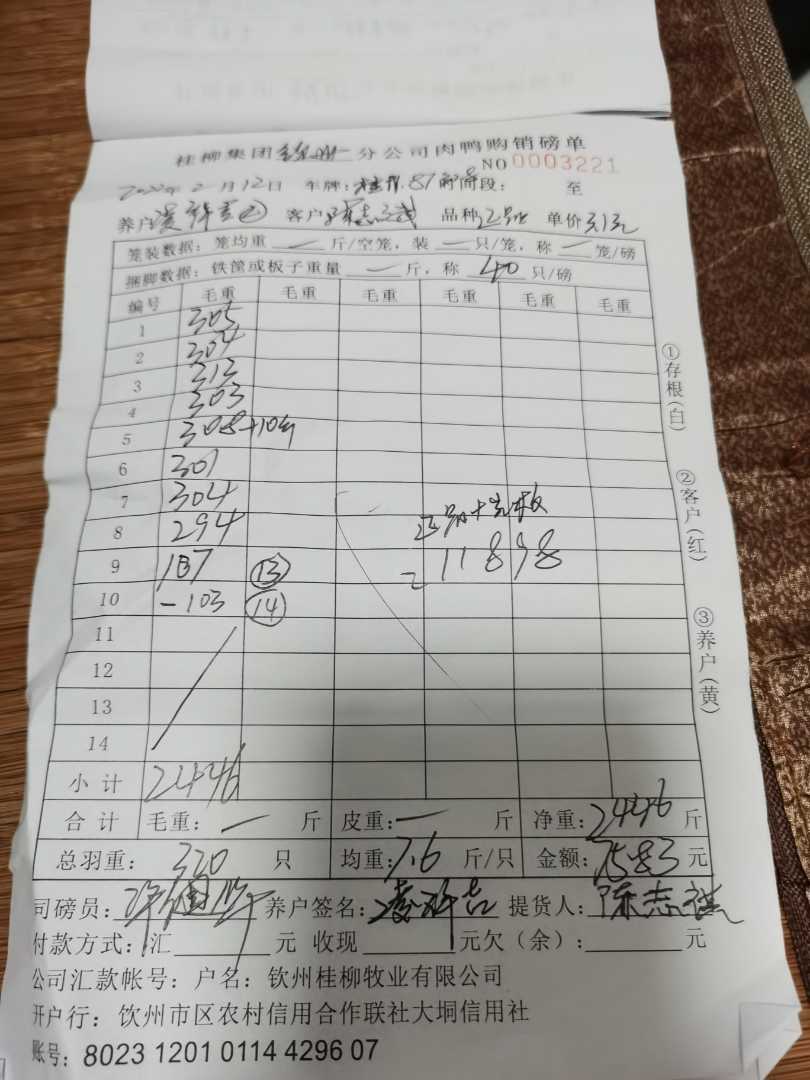 桂柳集团 分公司肉鸭购销磅单
NO 0003221
2022年2月12日 车牌: 时段: 至
养户: 客户: 陈志 品种 单价
笼装数据: 笼均重 — 斤/空笼, 装 — 只/笼, 称 — 笼/磅
捆脚数据: 铁篮或板子重量 — 斤, 称 40 只/磅
编号 毛重 毛重 毛重 毛重 毛重 毛重
1 305
2 304
3 313
4 303
5 308
6 301
7 304
8 294
9 137 ⑬
10 -103 ⑭
11
12
13
14
11898
小计 2446
合计 毛重: — 斤 皮重: — 斤 净重: 2446 斤
总羽重: 320 只 均重: 7.6 斤/只 金额: 7583 元
司磅员: 养户签名: 提货人: 陈志
付款方式: 汇 元 收现 元欠(余): 元
公司汇款帐号: 户名: 钦州桂柳牧业有限公司
开户行: 钦州市区农村信用合作联社大垌信用社
账号: 8023 1201 0114 4296 07
①存根(白)
②客户(红)
③养户(黄)